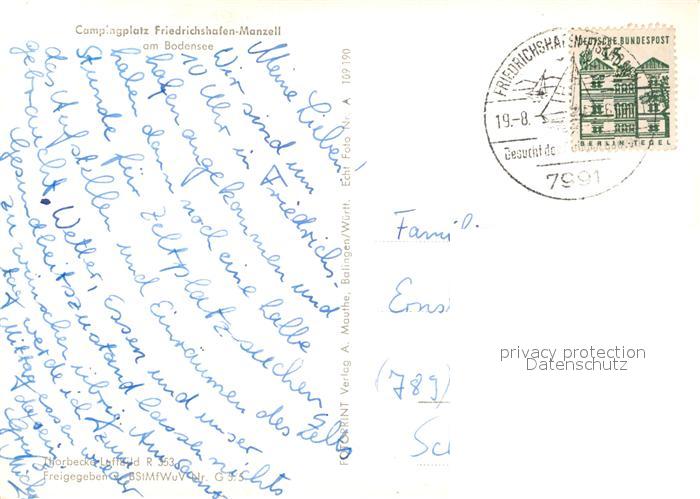 Campingplatz Friedrichshafen-Manzell
am Bodensee
Meine Lieben!
Wir sind um
10 Uhr in Friedrichs-
hafen angekommen und
haben dann noch eine halbe
Stunde für Zeltplatzsuchen
das Aufstellen und Einräumen des Zelts
gebraucht. Wetter, Essen und unser
Gesundheitszustand lassen nichts
zu wünschen übrig. Am
tag werde ich zum
Mittag essen wieder
da sein
Thorbecke-Luftbild R 353
Freigegeben v. BStMfWuV Nr. G
FOTOPRINT Verlag A. Mauthe, Balingen/Württ. Echt Foto Nr. A 109 190
FRIEDRICHSHAFEN
19.-8.
Besucht de
7991
DEUTSCHE BUNDESPOST
BERLIN-TEGEL
Famil
Erns
(789)
Sc
privacy protection
Datenschutz